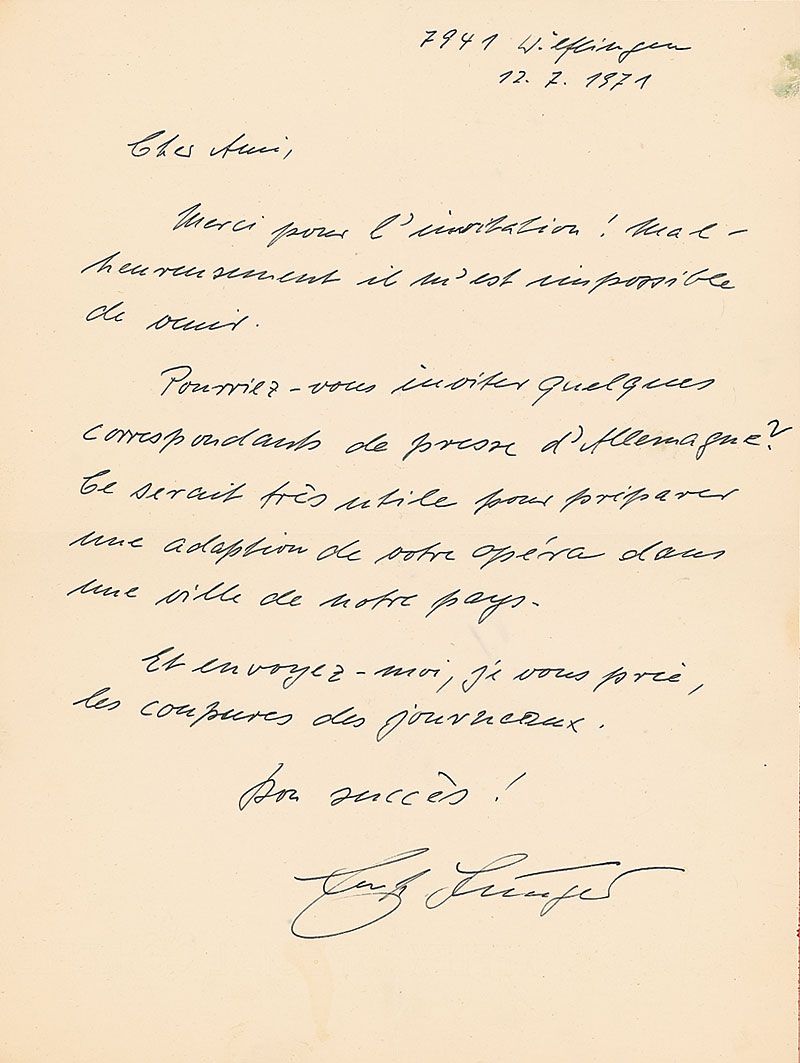 7941 Wilflingen
12. 7. 1971
Cher Ami,
Merci pour l'invitation! Mal-
heureusement il m'est impossible
de venir.
Pourriez-vous inviter quelques
correspondants de presse d'Allemagne?
Ce serait très utile pour préparer
une adaption de votre opéra dans
une ville de notre pays.
Et envoyez-moi, je vous prie,
les coupures des journeaux.
Bon succès!
Ernst Jünger